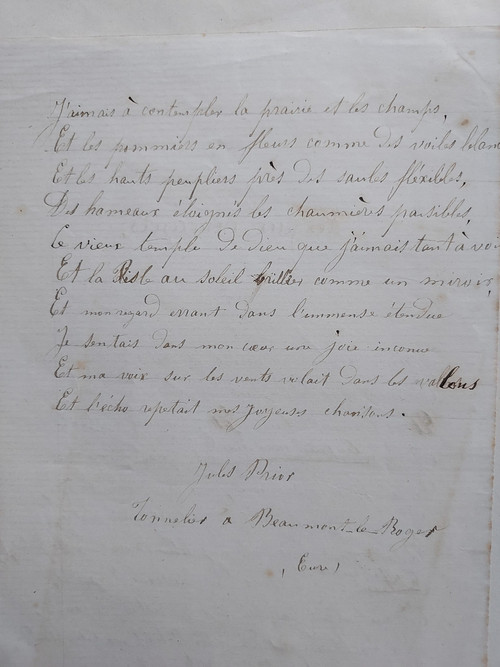 J'aimais à contempler la prairie et les champs,
Et les pommiers en fleurs comme des voiles blan
Et les hauts peupliers près des saules fléxibles,
Des hameaux éloignés les chaumières paisibles,
Ce vieux temple de Dieu que j'aimais tant à vo
Et la Risle au soleil briller comme un miroir,
Et mon regard errant dans l'immense étendue
Je sentais dans mon cœur une joie inconnue
Et ma voix sur les vents volait dans les vallons
Et l'écho repetait mes joyeuses chansons.
Jules Prior
Tonnelier a Beaumont-le-Roger
(Eure)